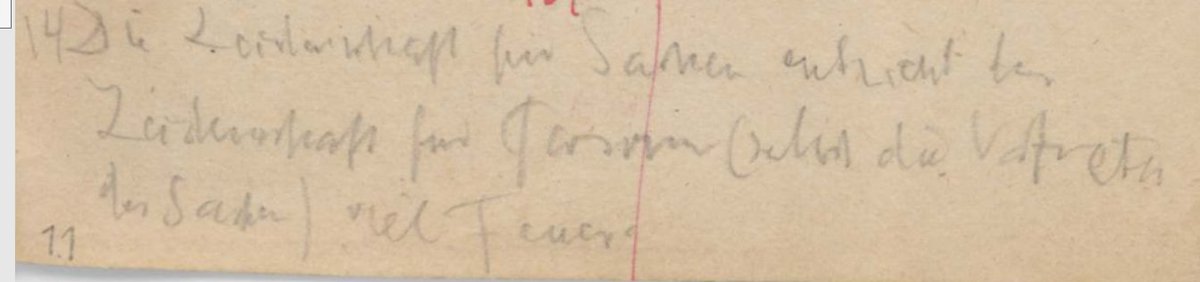 14 Die Leidenschaft für Sachen entzieht der
Leidenschaft für Personen (selbst die Vertreter
der Sachen) viel Feuer.
11